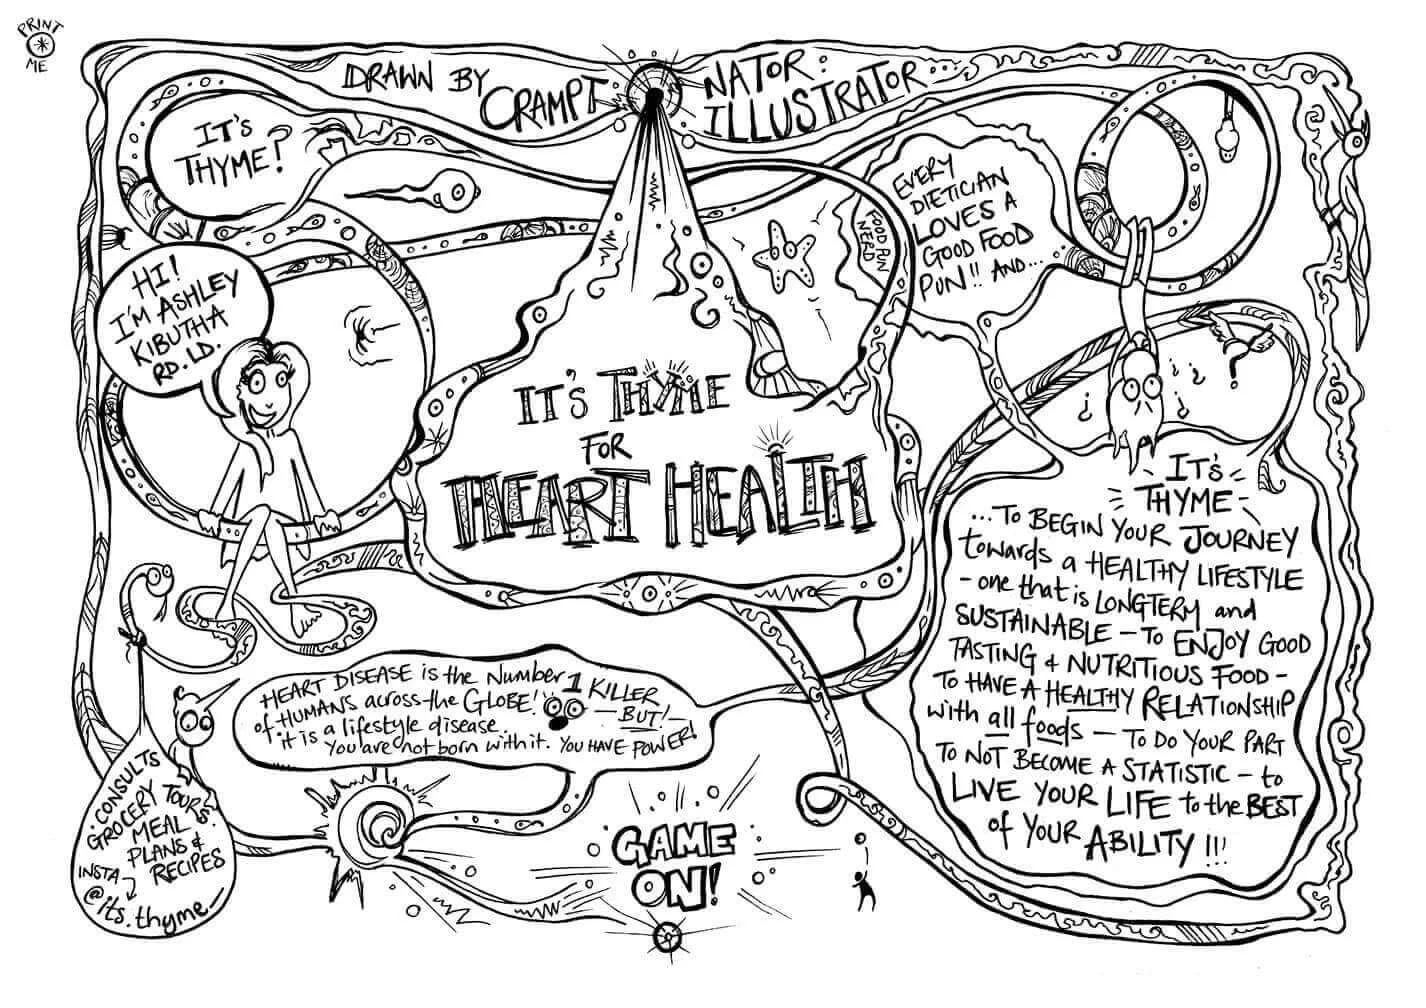 PRINT
ME
DRAWN BY
CRAMPT
NATOR:
ILLUSTRATOR
IT'S
THYME?
HI!
I'M ASHLEY
KIBUTHA
RD. LD.
FOOD PUN
NERD
EVERY
DIETICIAN
LOVES A
GOOD FOOD
PUN!! AND...
IT'S THYME
FOR
HEART HEALTH
IT'S
THYME
...TO BEGIN YOUR JOURNEY
towards a HEALTHY LIFESTYLE
- one that is LONGTERM and
SUSTAINABLE - TO ENJOY GOOD
TASTING & NUTRITIOUS FOOD -
TO HAVE A HEALTHY RELATIONSHIP
with all foods - TO DO YOUR PART
TO NOT BECOME A STATISTIC - to
LIVE YOUR LIFE to the BEST
of YOUR ABILITY !!!
HEART DISEASE is the Number 1 KILLER
of HUMANS across the GLOBE! - BUT! -
it is a lifestyle disease.
You are not born with it. YOU HAVE POWER!
CONSULTS
GROCERY TOURS
MEAL
PLANS &
RECIPES
INSTA
@its.thyme_
GAME
ON!